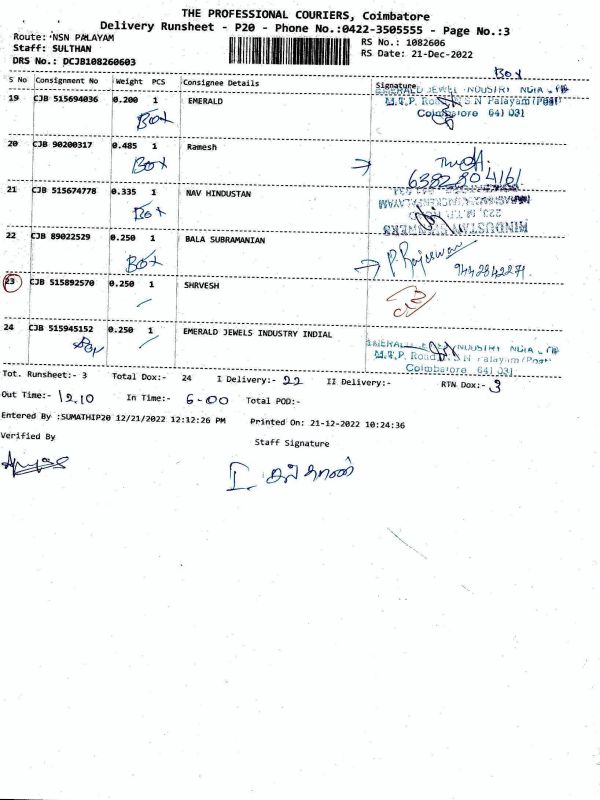 THE PROFESSIONAL COURIERS, Coimbatore
Delivery Runsheet - P20 - Phone No.:0422-3505555 - Page No.:3
Route: NSN PALAYAM RS No.: 1082606
Staff: SULTHAN RS Date: 21-Dec-2022
DRS No.: DCJB108260603
Box
S No Consignment No Weight PCS Consignee Details Signature
19 CJB 515694036 0.200 1 EMERALD
EMERALD JEWEL INDUSTRY INDIA
M.T.P. Road N S N Palayam (Post)
Box Coimbatore 641 031
20 CJB 90200317 0.485 1 Ramesh
Box
6382804161
21 CJB 515674778 0.335 1 NAV HINDUSTAN
Box
223, M.T.P.
HINDUSTAN
22 CJB 89022529 0.250 1 BALA SUBRAMANIAN
Box P. Rajeswari
9442842271
23 CJB 515892570 0.250 1 SHRVESH
24 CJB 515945152 0.250 1 EMERALD JEWELS INDUSTRY INDIAL
Box
EMERALD JEWEL INDUSTRY INDIA
M.T.P. Road N S N Palayam (Post)
Coimbatore 641 031
Tot. Runsheet:- 3 Total Dox:- 24 I Delivery:- 22 II Delivery:- RTN Dox:- 3
Out Time:- 12.10 In Time:- 6-00 Total POD:-
Entered By :SUMATHIP20 12/21/2022 12:12:26 PM Printed On: 21-12-2022 10:24:36
Verified By Staff Signature